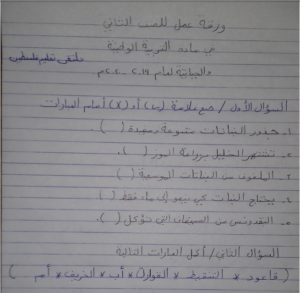 ورقة عمل للصف الثاني
في مادة التربية الوطنية
والحياتية لعام ٢٠١٩ - ٢٠٢٠م
ملتقى تعليم فلسطين
السؤال الأول / ضع علامة (✓) أو (X) أمام العبارات
١- جذور النباتات متنوعة ومفيدة ( ).
٢- تشتهر الخليل بزراعة الموز ( ).
٣- الملفوف من النباتات الموسمية ( ).
٤- يحتاج النبات كي ينمو إلى ماء فقط ( ).
٥- البقدونس من السيقان التي تؤكل ( ).
السؤال الثاني / أكمل العبارات التالية
( قاعود * التنقيط * الفوارة * أب * الخريف * أم )